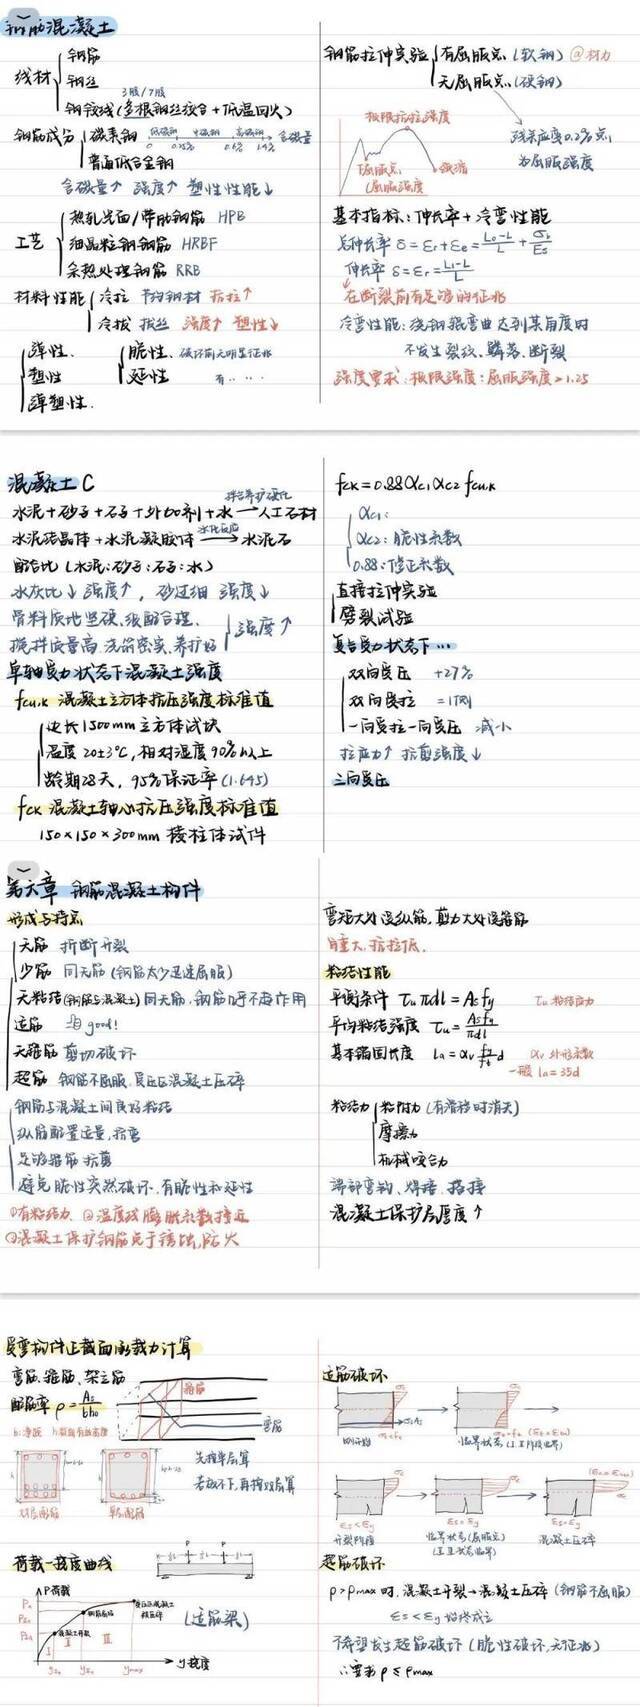 钢筋混凝土
线材
钢筋
钢丝
3股/7股
钢绞线(多根钢丝绞合+低温回火)
钢筋成分
碳素钢
低碳钢 中碳钢 高碳钢 含碳量
0 0.25% 0.6% 1.4%
普通低合金钢
含碳量↑ 强度↑ 塑性性能↓
工艺
热轧光面/带肋钢筋 HPB
细晶粒钢钢筋 HRBF
余热处理钢筋 RRB
材料性能
冷拉 节约钢材 抗拉↑
冷拔 拔丝 强度↑ 塑性↓
弹性、
塑性
弹塑性.
脆性、破坏前无明显征兆
延性 有....
钢筋拉伸实验
有屈服点(软钢) @材力
无屈服点(硬钢)
残余应变0.2%点
为屈服强度
极限抗拉强度
屈服点
屈服强度
基本指标:伸长率+冷弯性能
总伸长率 δ=εr+εe=(L0-L)/L+σb/Es
伸长率 δ=εr=(L0-L)/L
在断裂前有足够的征兆
冷弯性能:绕钢辊弯曲达到某角度时
不发生裂纹、鳞落、断裂
强度要求:极限强度:屈服强度>1.25
混凝土C
水泥+砂子+石子+外加剂+水→人工石材
拌合养护硬化
水泥结晶体+水泥凝胶体→水泥石
水化反应
配合比(水泥:砂子:石子:水)
水灰比↓ 强度↑,砂过细 强度↓
骨料质地坚硬、级配合理、
搅拌质量高、浇筑密实、养护好
强度↑
单轴受力状态下混凝土强度
fcu,k 混凝土立方体抗压强度标准值
边长1500mm立方体试块
温度20±3℃,相对湿度90%以上
龄期28天,95%保证率(1.645)
fck 混凝土轴心抗压强度标准值
150×150×300mm 棱柱体试件
fck=0.88αc1αc2fcu,k
αc1:
αc2:脆性系数
0.88:修正系数
直接拉伸实验
劈裂试验
复合受力状态下...
双向受压 +27%
双向受拉 =1倍
一向受拉一向受压 减小
拉应力↑ 抗剪强度↓
三向受压
第六章 钢筋混凝土构件
形成与特点
无筋 折断开裂
少筋 同无筋(钢筋太少迅速屈服)
无粘结(钢筋与混凝土)同无筋,钢筋几乎不起作用
适筋 good!
无箍筋 剪切破坏
超筋 钢筋不屈服,受压区混凝土压碎
钢筋与混凝土间良好粘结
纵筋配置适量,抗弯
足够箍筋抗剪
避免脆性突然破坏,有脆性和延性
①有粘结力 ②温度线膨胀系数接近
③混凝土保护钢筋免于锈蚀,防火
弯矩大处设纵筋,剪力大处设箍筋
自重大,抗拉低.
粘结性能
平衡条件 τuπdl=Asfy τu 粘结应力
平均粘结强度 τu=Asfy/πdl
基本锚固长度 la=αv fy/ft d αv 外形系数
一般 la=35d
粘结力
粘附力(有滑移时消失)
摩擦力
机械咬合力
端部弯钩、焊接、搭接
混凝土保护层厚度↑
受弯构件正截面承载力计算
弯筋、箍筋、架立筋
配筋率 ρ=As/bh0
箍筋
弯筋
双层配筋
单层配筋
先按单层算
若放不下,再按双层算
荷载-挠度曲线
P荷载
y挠度
(适筋梁)
适筋破坏
刚开始
σs<ft
开裂阶段
εs<εy
εs=εy
混凝土压碎
超筋破坏
ρ>ρmax时,混凝土开裂→混凝土压碎(钢筋不屈服)
εs<εy 始终成立
不希望发生超筋破坏(脆性破坏,无征兆)
∴要求 ρ≤ρmax